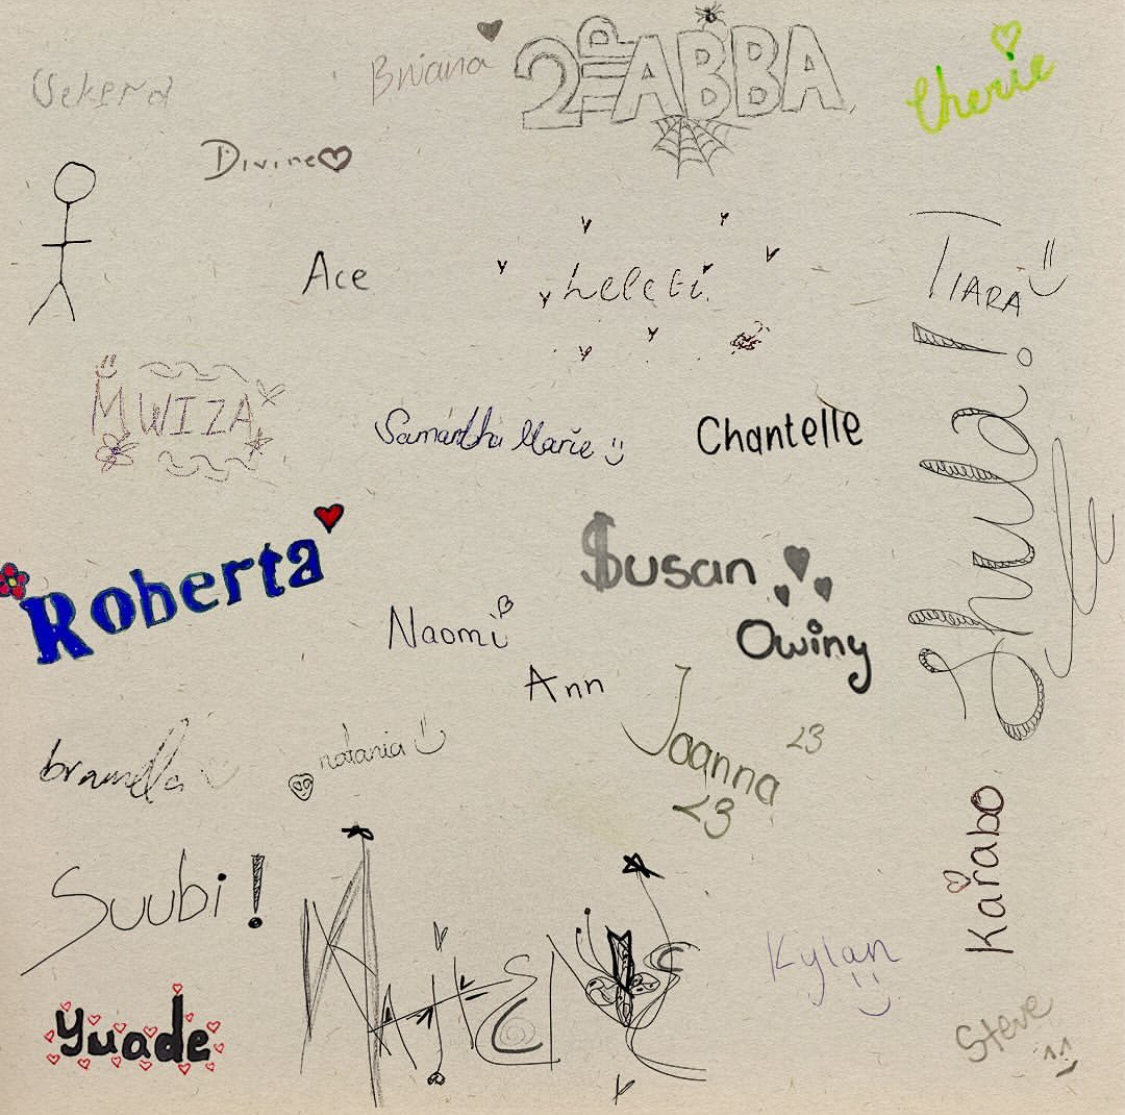 Briana
2P ABBA
Cherie
Divine
Ace
Leleti
TIARA
MWIZA
Samantha Marie
Chantelle
Shula!
Roberta
$usan
Owiny
Naomi
Ann
natania
Joanna
<3
<3
Karabo
Suubi!
Kylan
Yuade
Steve
^^